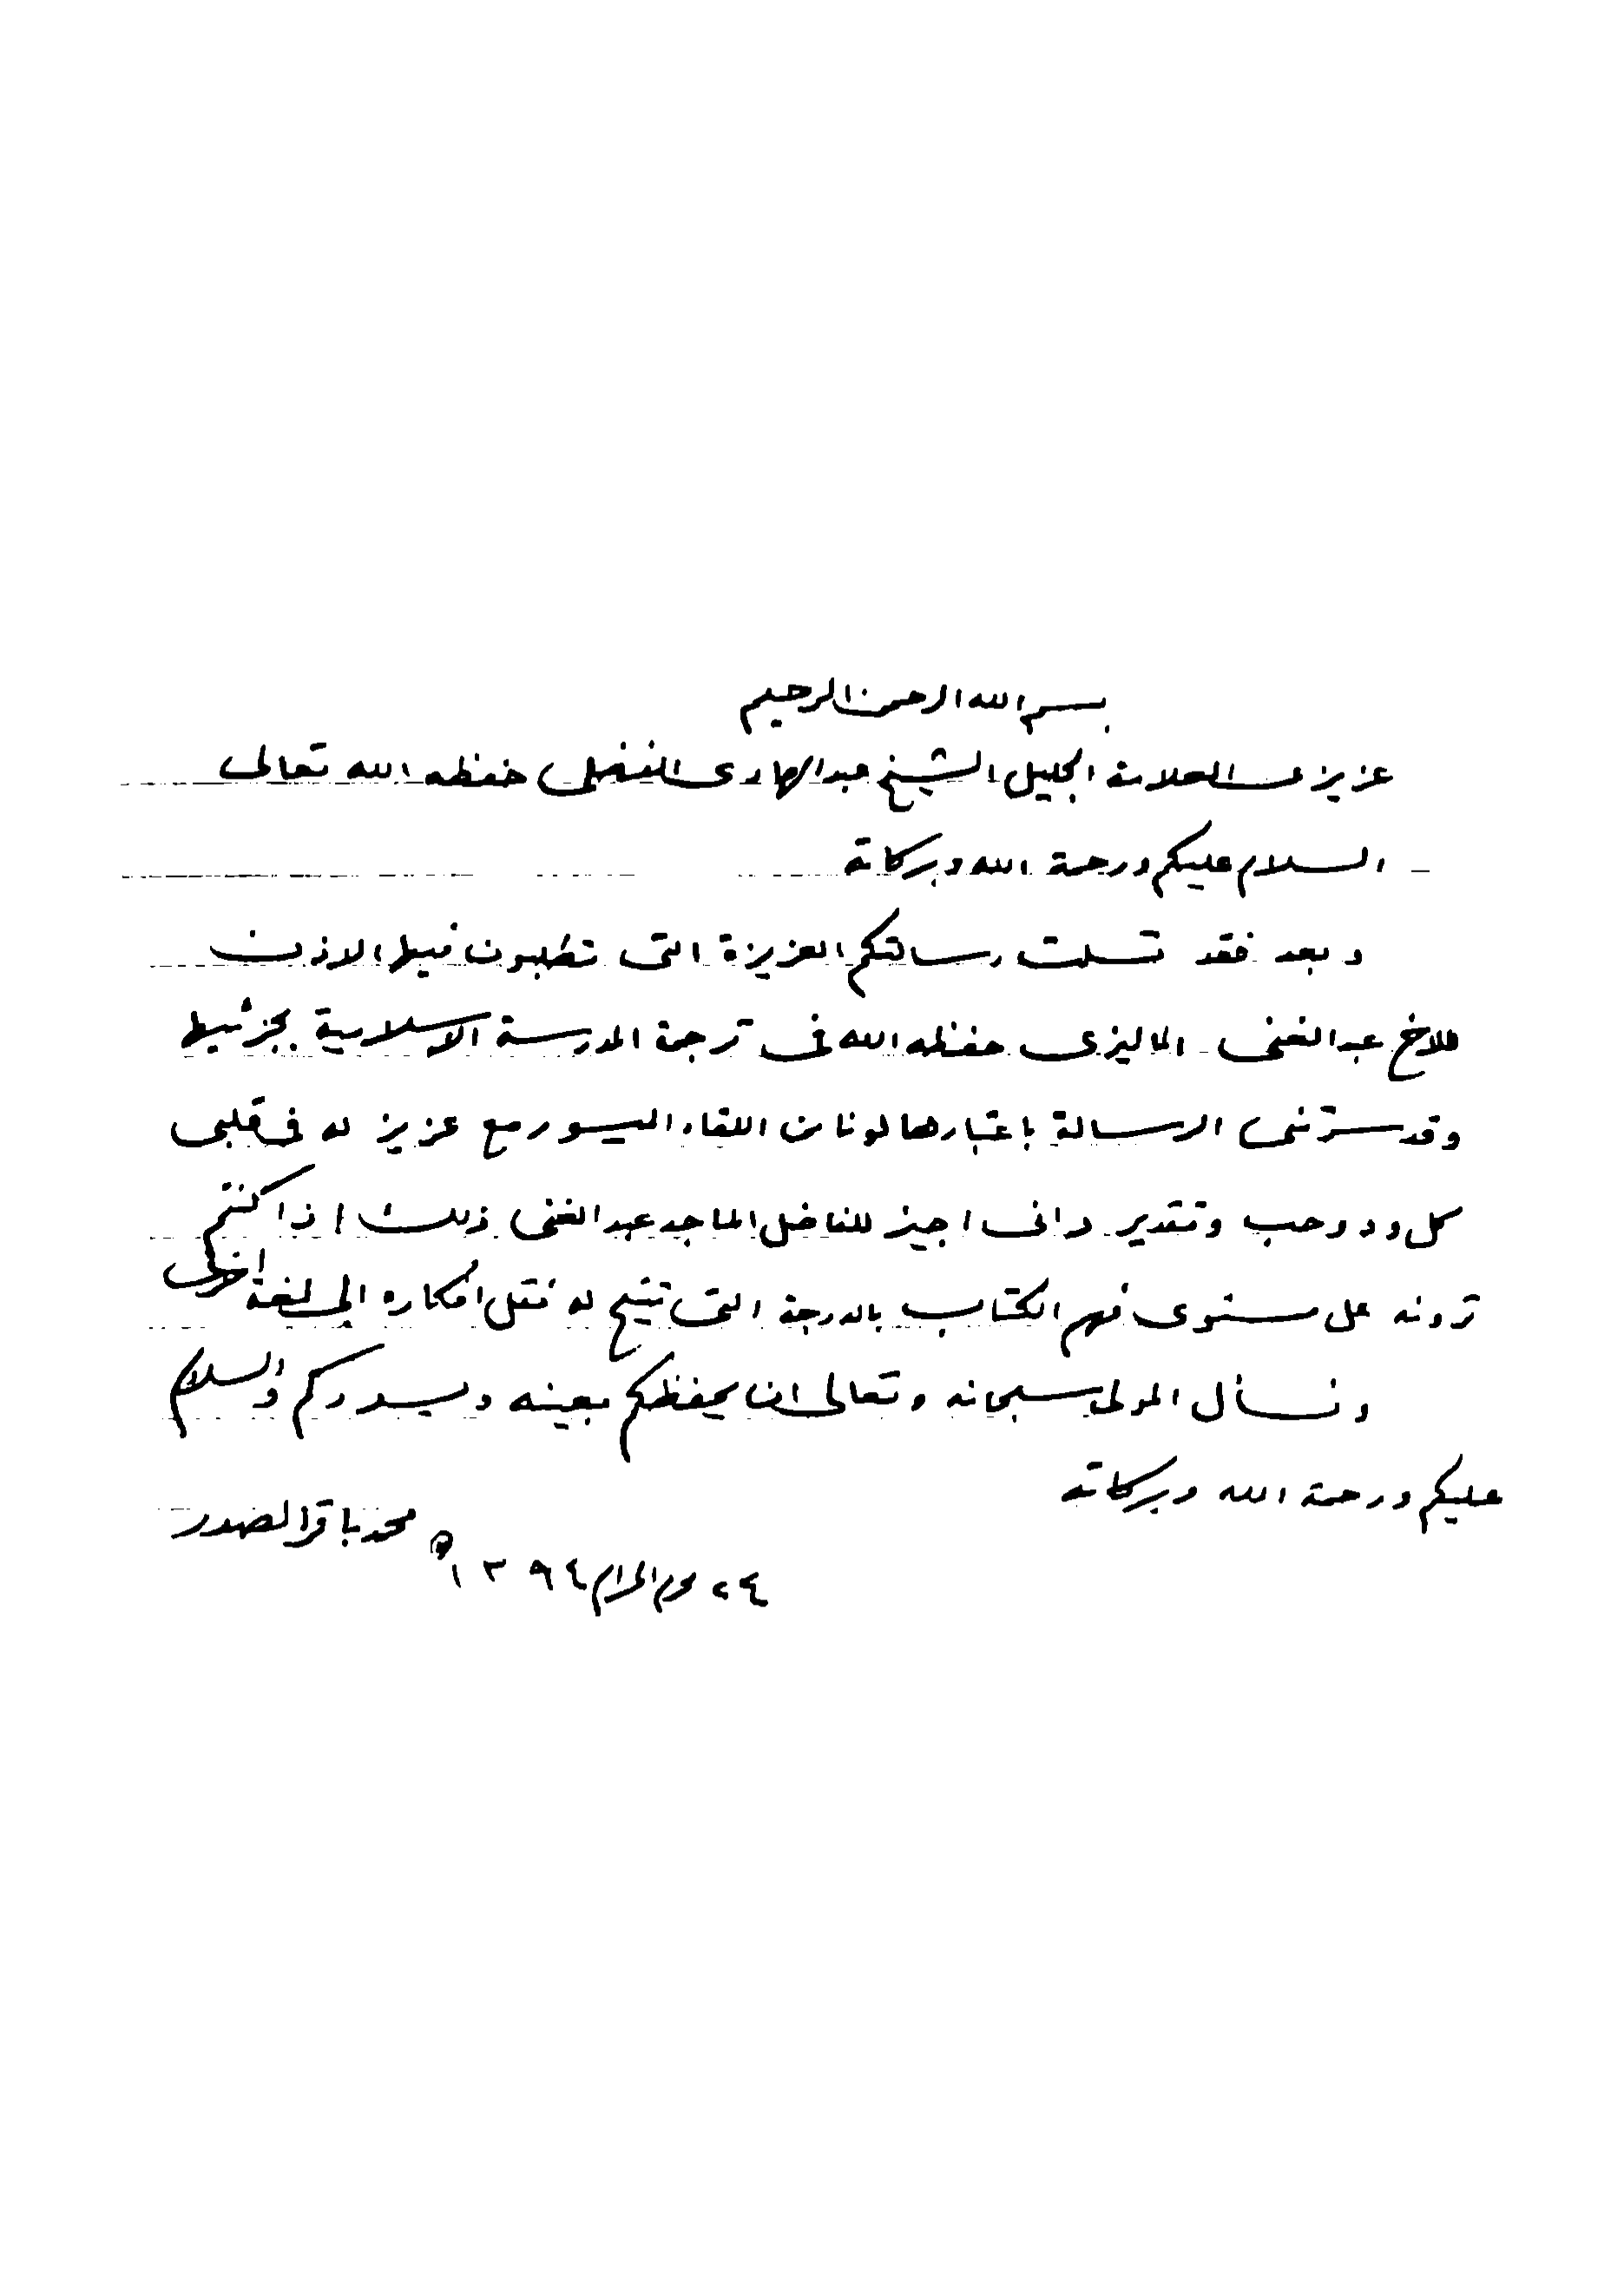 بسم الله الرحمن الرحيم
عزيزي العلامة الجليل الشيخ عبد الهادي الفضلي حفظه الله تعالى
السلام عليكم ورحمة الله وبركاته
وبعد فقد تسلمت رسالتكم العزيزة التى تطلبون فيها الاذن
للاخ عبد الغني الماليزى حفظه الله فى ترجمة المدرسة الاسلامية بجزئيها
وقد سرتنى الرسالة باعتبارها لونا من اللقاء الميسور مع عزيز له فى قلبى
كل ود وحب وتقدير وانى اجيز للفاضل الماجد عبد الغنى ذلك اذا كنتم
ترونه على مستوى فهم الكتاب بالدرجة التى تتيح له نقل افكاره الى لغة اخرى
ونسأل المولى سبحانه وتعالى ان يحفظكم بعينه ويسددكم والسلام
عليكم ورحمة الله وبركاته
محمد باقر الصدر
٢٤ محرم الحرام ١٣٩٤ ه